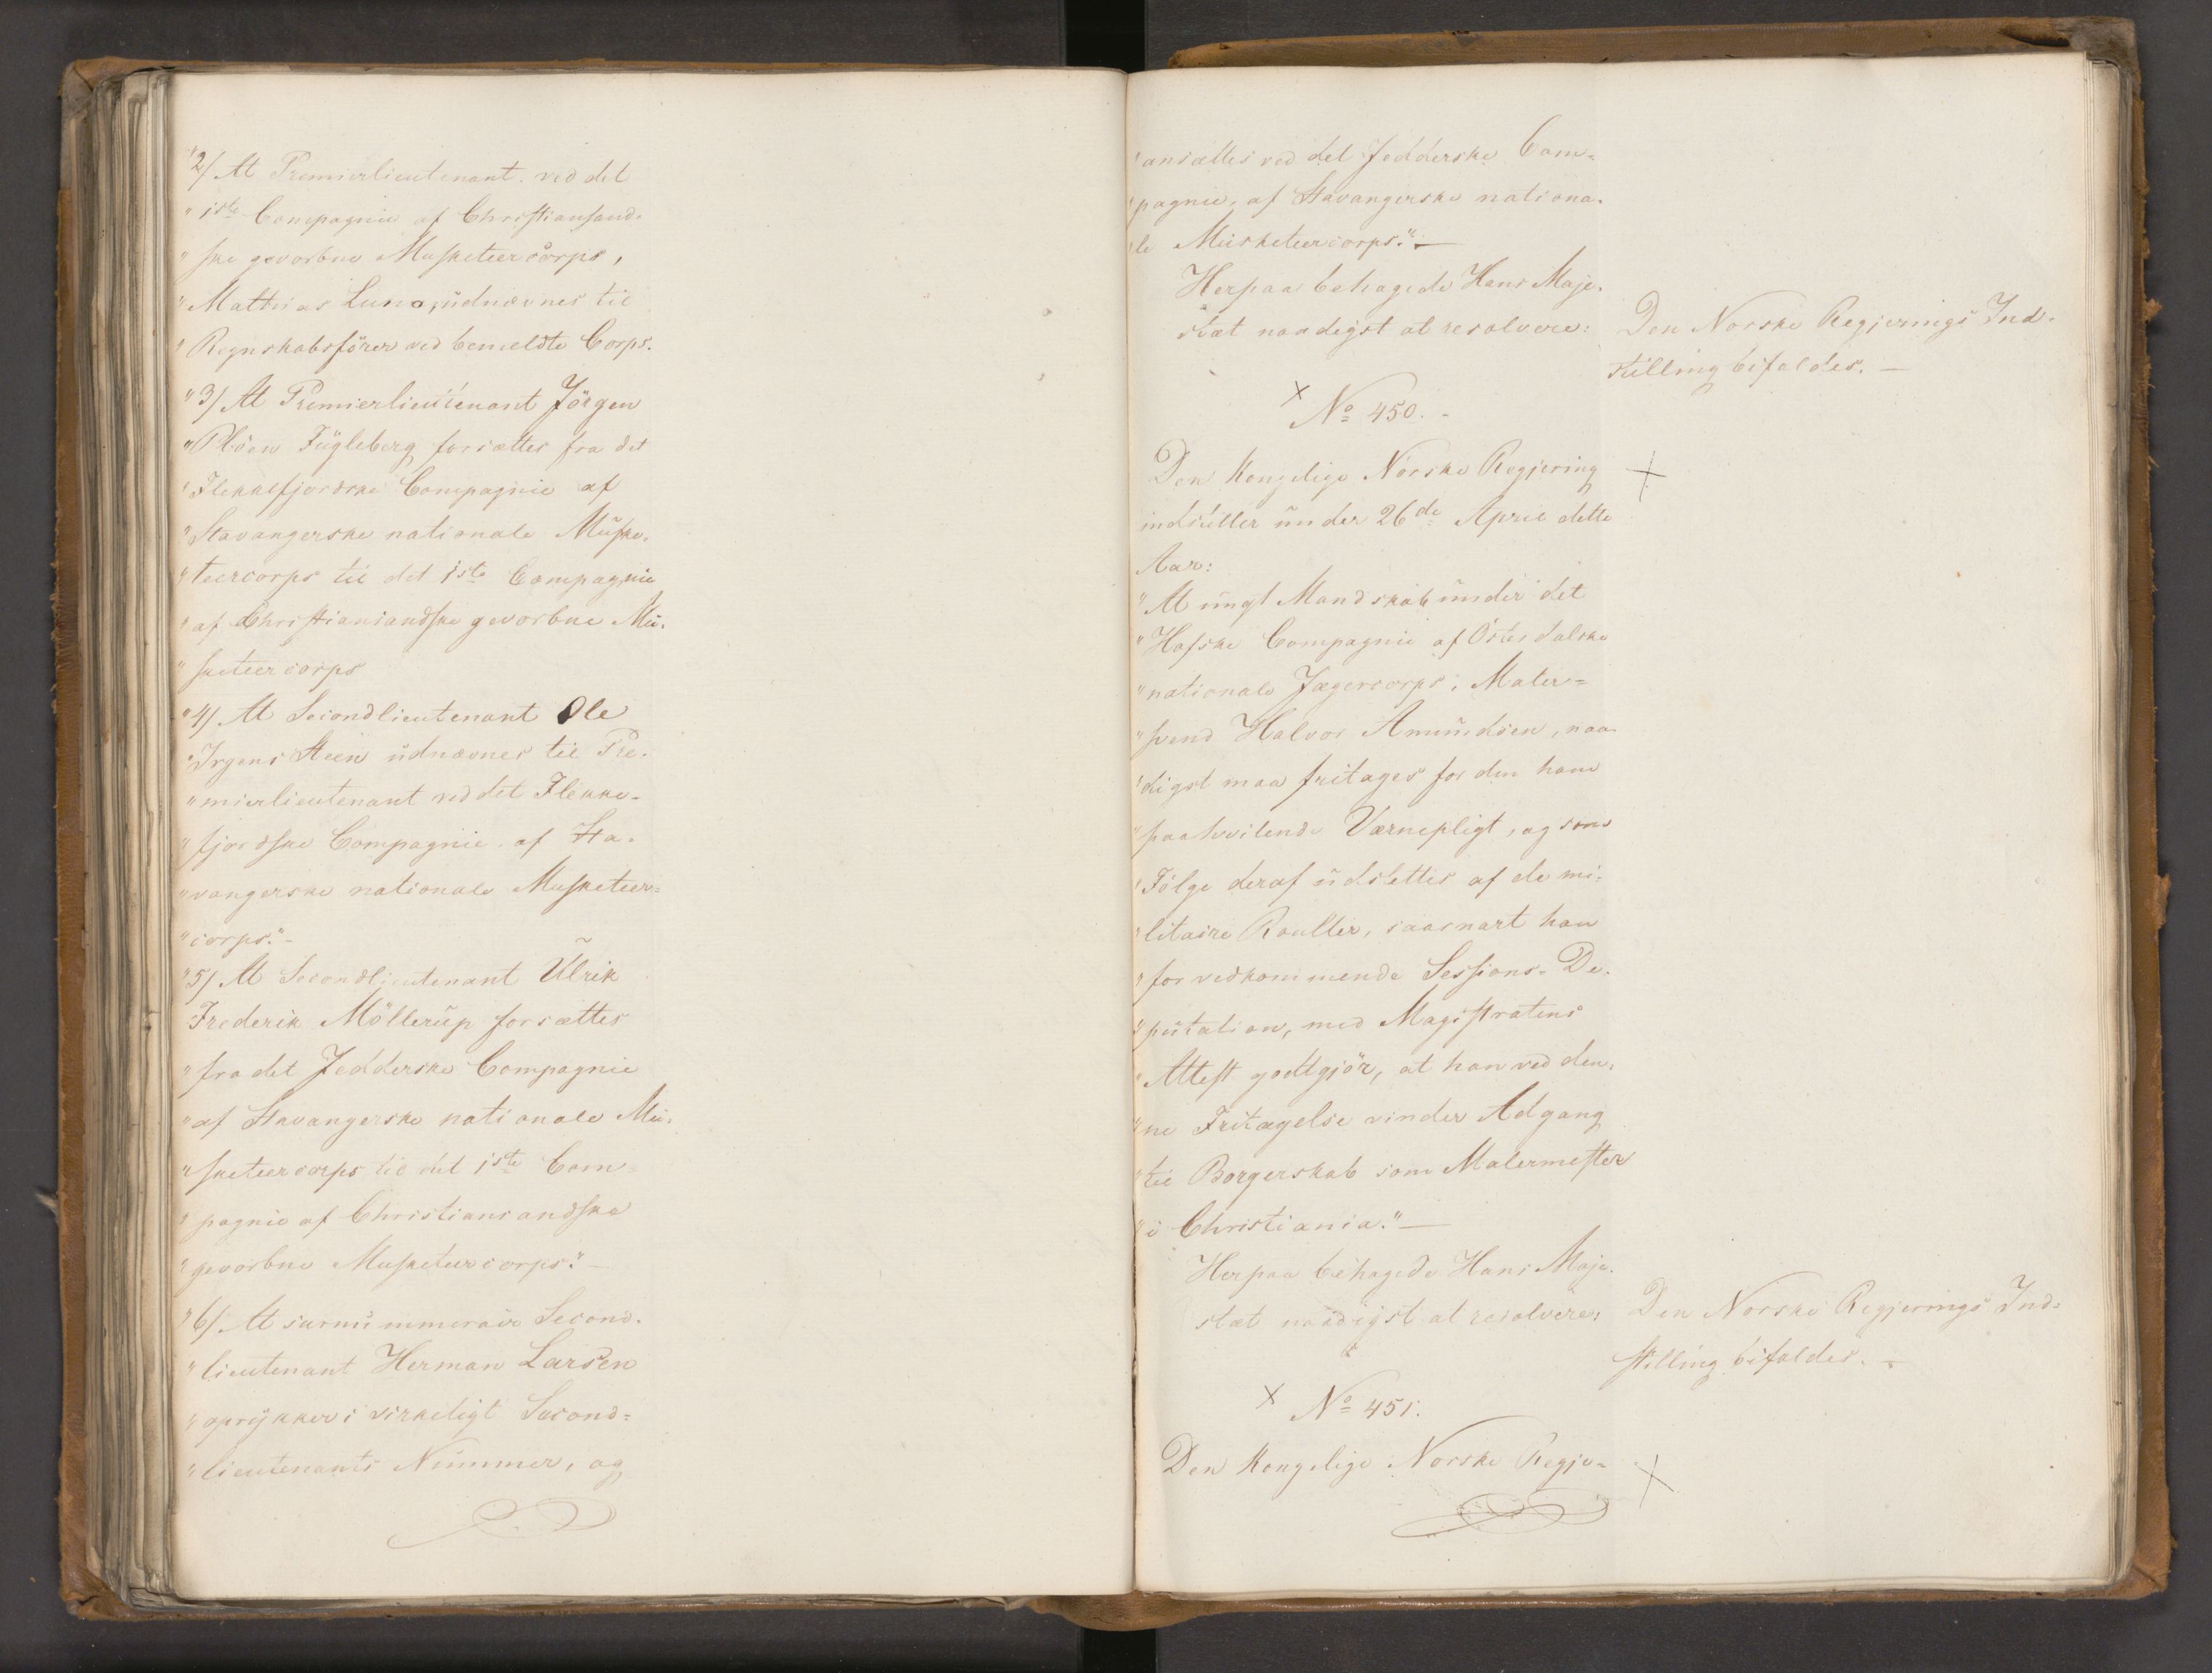 "2/ At Premierlieutenant ved det
" 1ste Compagnie af Christiansand-
" ske gevorbne Musketeercorps,
" Mathias Luno, udnævnes til
" Regnskabsfører ved bemeldte Corps.
"3/ At Premierlieutenant Jörgen
" Plöen Fugleberg forsættes fra det
" Flekkefjordske Compagnie af
" Stavangerske nationale Muske-
" teercorps til det 1ste Compagnie
" af Christiansandske gevorbne Mu-
" sketeercorps
"4/ At Secondlieutenant Ole
" Irgens Steen udnævnes til Pre-
" mierlieutenant ved det Flekke-
" fjordske Compagnie af Sta-
" vangerske nationale Musketeer-
" corps."-
"5/ At Secondlieutenant Ulrik
Frederik Möllerup forsættes
" fra det Jedderske Compagnie
" af Stavangerske nationale Mu-
" sketeercorps til det 1ste Com-
" pagnie af Christiansandske
" gevorbne Musketeercorps."-
"6/ At surnummerair Second-
" lieutenant Herman Larsen
" oprykker i virkeligt Second-
" lieutenants Nummer, og
" ansættes ved det Jedderske Com-
" pagnie, af Stavangerske nationa-
" le Musketeercorps."-
Herpaa behagede Hans Maje-
stæt naadigst at resolvere:
Den Norske Regjerings Ind-
stilling bifaldes. -
× No 450. -
Den Kongelige Norske Regjering
×
indstiller under 26de April dette
Aar:
" At ungt Mandskab under det
" Hofske Compagnie af Österdalske
" nationale Jægercorps, Maler-
" svend Halvor Amundsen, naa-
" digst maa fritages for den ham
" paahvilende Værnepligt, og som
" Fölge deraf udslettes af de mi-
" litaire Rouller, saasnart han
" for vedkommende Sessions-De-
" putation, med Magistratens
" Attest godtgjör, at han ved den-
" ne Fritagelse vinder Adgang
" til Borgerskab som Malermester
" i Christiania."-
Herpaa behagede Hans Maje-
stæt naadigst at resolvere:
Den Norske Regjerings Ind-
stilling bifaldes. -
× No 451.
Den Kongelige Norske Regje-
×